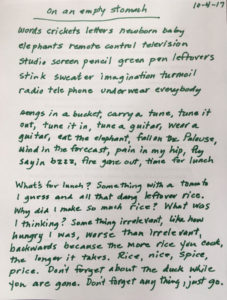 10-4-17
on an empty stomach
Words crickets letters newborn baby
elephants remote control television
Studio screen pencil green pen leftovers
Stink sweater imagination turmoil
radio telephone underwear everybody
in a bucket, carry a tune, tune it
out, tune it in, tune a guitar, wear a
guitar, eat the elephant, follow the Palouse,
Wind in the forecast, pain in my hip, fly
sayin bzzz, fire gone out, time for lunch
What's for lunch? Something with a tomato
I guess and all that dang leftover rice.
Why did I make so much rice? What was
I thinking? Something irrelevant, like how
hungry I was, worse than irrelevant,
backwards because the more rice you cook,
the longer it takes. Rice, nice, spice,
price. Don't forget about the duck while
you are gone. Don't forget anything; just go.